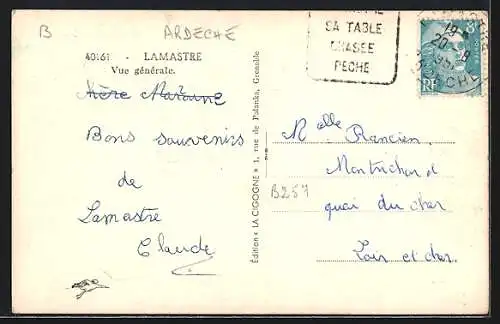 B
ARDECHE
40161 - LAMASTRE
Vue générale.
Bons souvenirs
de
Lamastre
Claude
Edition « LA CIGOGNE » 1, rue de Palanka, Grenoble
SA TABLE
CHASSE
PECHE
19 H
20 - 8
RF
Melle Rancien
Montrichard
quai du cher
B257
Loir et cher.